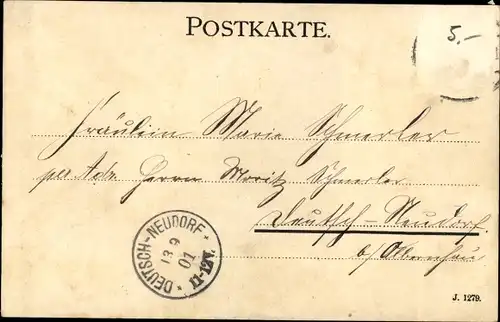 POSTKARTE.
5.-
Fräulein Marie Schmerler
per Adr. Herrn Moritz Schmerler
Deutsch-Neudorf
b/Olbernhau
DEUTSCH-NEUDORF
13 9
01
11-12V.
J. 1279.